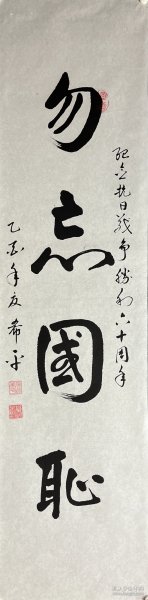 纪念抗日战争勝利六十周年
勿忘國耻
乙酉年友希平